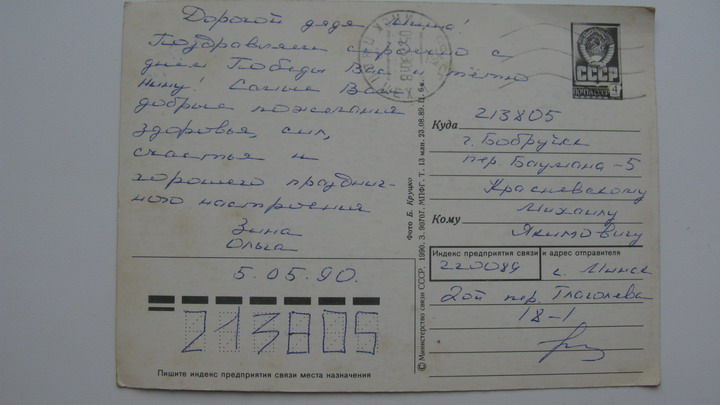 Дорогой дядя Миша!
Поздравляем сердечно с
днём Победы Вас и тётю
Нину! Самые Вам
добрые пожелания
здоровья, сил,
счастья и
хорошего празднич-
ного настроения
Зина
Ольга
5.05.90.
213805
Пишите индекс предприятия связи места назначения
© Министерство связи СССР, 1990. З. 90707. МПФГ. Т. 13 млн. 23.08.89. Ц. 6 к.
Фото Б. Круцко
СССР
ПОЧТА
4
Куда
213805
г. Бобруйск
пер. Баумана-5
Красневскому
Кому
Михаилу
Якимовичу
Индекс предприятия связи и адрес отправителя
220089
г. Минск
2ой пер. Глаголева
18-1